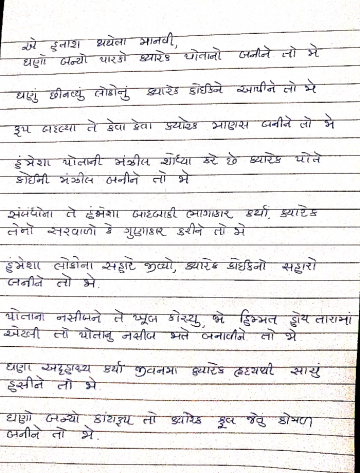 એ હતાશ થયેલા માનવી,
ઘણો બન્યો પારકો ક્યારેક પોતાનો બનીને તો જો
ઘણું છીનવ્યું લોકોનું ક્યારેક કોઈકને આપીને તો જો
રૂપ બદલ્યા તે કેવા કેવા ક્યારેક માણસ બનીને તો જો
હંમેશા પોતાની મંઝીલ શોધ્યા કરે છે ક્યારેક પોતે
કોઈની મંઝીલ બનીને તો જો
સંબંધોના તે હંમેશા બાદબાકી ભાગાકાર કર્યા, ક્યારેક
તેનો સરવાળો કે ગુણાકાર કરીને તો જો
હંમેશા લોકોના સહારે જીવ્યો, ક્યારેક કોઈકનો સહારો
બનીને તો જો.
પોતાના નસીબને તે ખૂબ કોસ્યુ, જો હિમ્મત હોય તારામાં
એટલી તો પોતાનુ નસીબ જાતે બનાવીને તો જો
ઘણા અટ્ટહાસ્ય કર્યા જીવનમા ક્યારેક હૃદયથી સાચું
હસીને તો જો
ઘણો બન્યો કાંટાળ્યો તો ક્યારેક ફૂલ જેવુ કોમળ
બનીને તો જો.